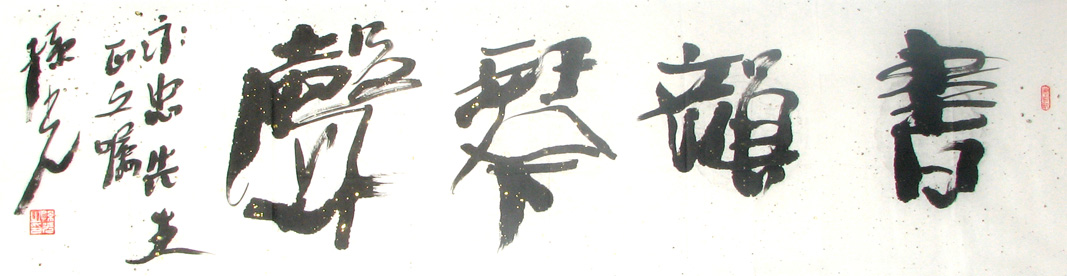 書韻琴聲
忠先生
正之嘱